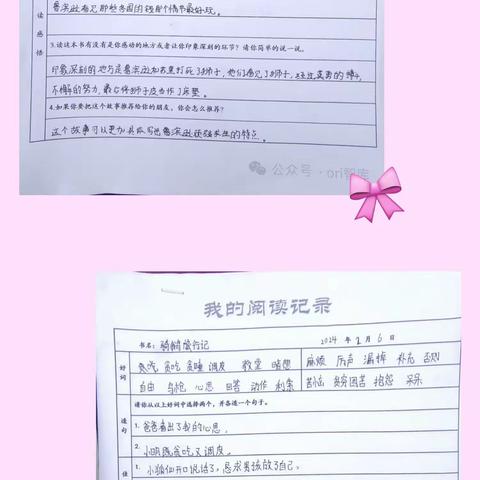 鲁滨逊看见那些多国的钱那个情节最好玩。
读
感
悟
3.读这本书有没有是你感动的地方或者让你印象深刻的环节?请你简单的说一说。
印象深刻的地方是鲁滨逊和苏里打死了狮子,他们看见了狮子,经过英勇的搏斗,
不懈的努力,最后将狮子皮当作了床垫。
4.如果你要把这个故事推荐给你的朋友,你会怎么推荐?
这个故事可以更加具体写出鲁滨逊顽强求生的特点。
公众号·ori智库
我的阅读记录
书名: 骑鹅旅行记 2024 年 2 月 6 日
好词
贪吃 贪睡 调皮 教堂 暗想 麻烦 厉声 漏掉 补充 否则
自由 乌鸦 心思 回答 动作 利索 贫穷困苦 抱怨 呆呆
请你从以上好词中选择两个,并各造一个句子。
造句
1.爸爸看出了我的心思。
2.小明既贪吃又调皮。
佳
1.小狐仙开口说话了,恳求男孩放了自己。